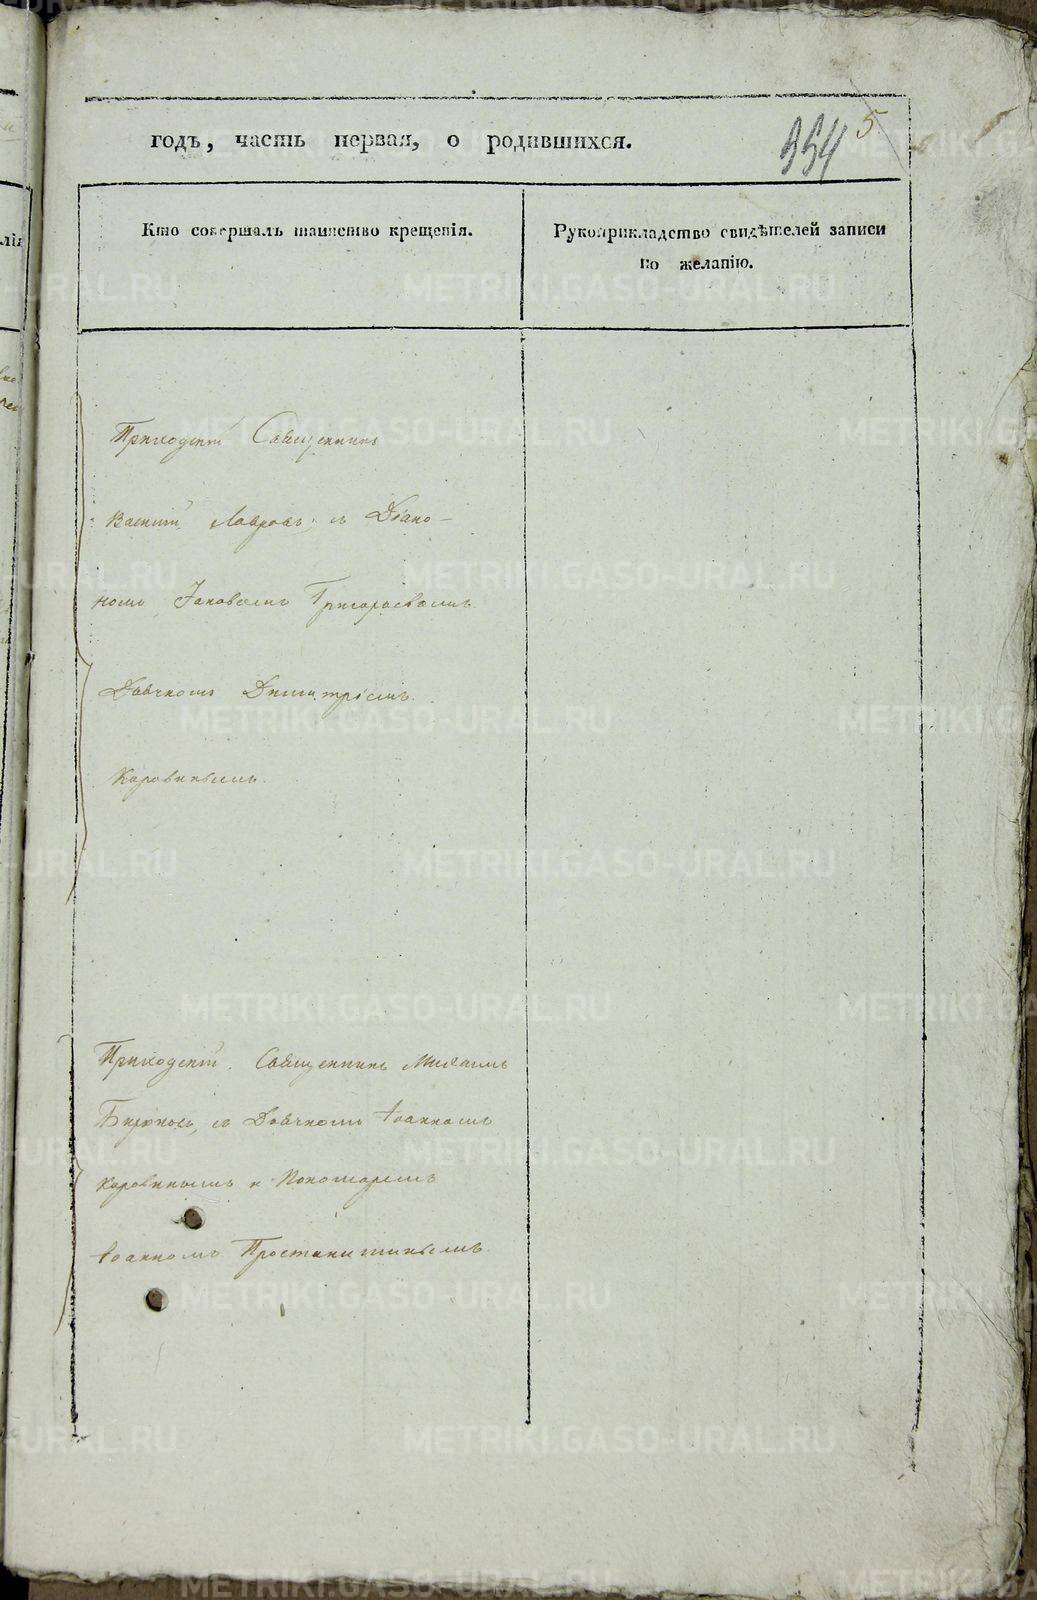 годъ, часть первая, о родившихся.
354 5
Кто совершалъ таинство крещенія.
Рукоприкладство свидѣтелей записи
по желанію.
Приходскій Священникъ
Василій Лавровъ, съ Діако-
номъ Іаковомъ Григорьевымъ
Дьячкомъ Димитріемъ
Коровинымъ.
Приходскій Священникъ Михаилъ
Бирюковъ, съ Дьячкомъ Іоанномъ
Коровинымъ и Пономаремъ
Іоанномъ
METRIKI.GASO-URAL.RU